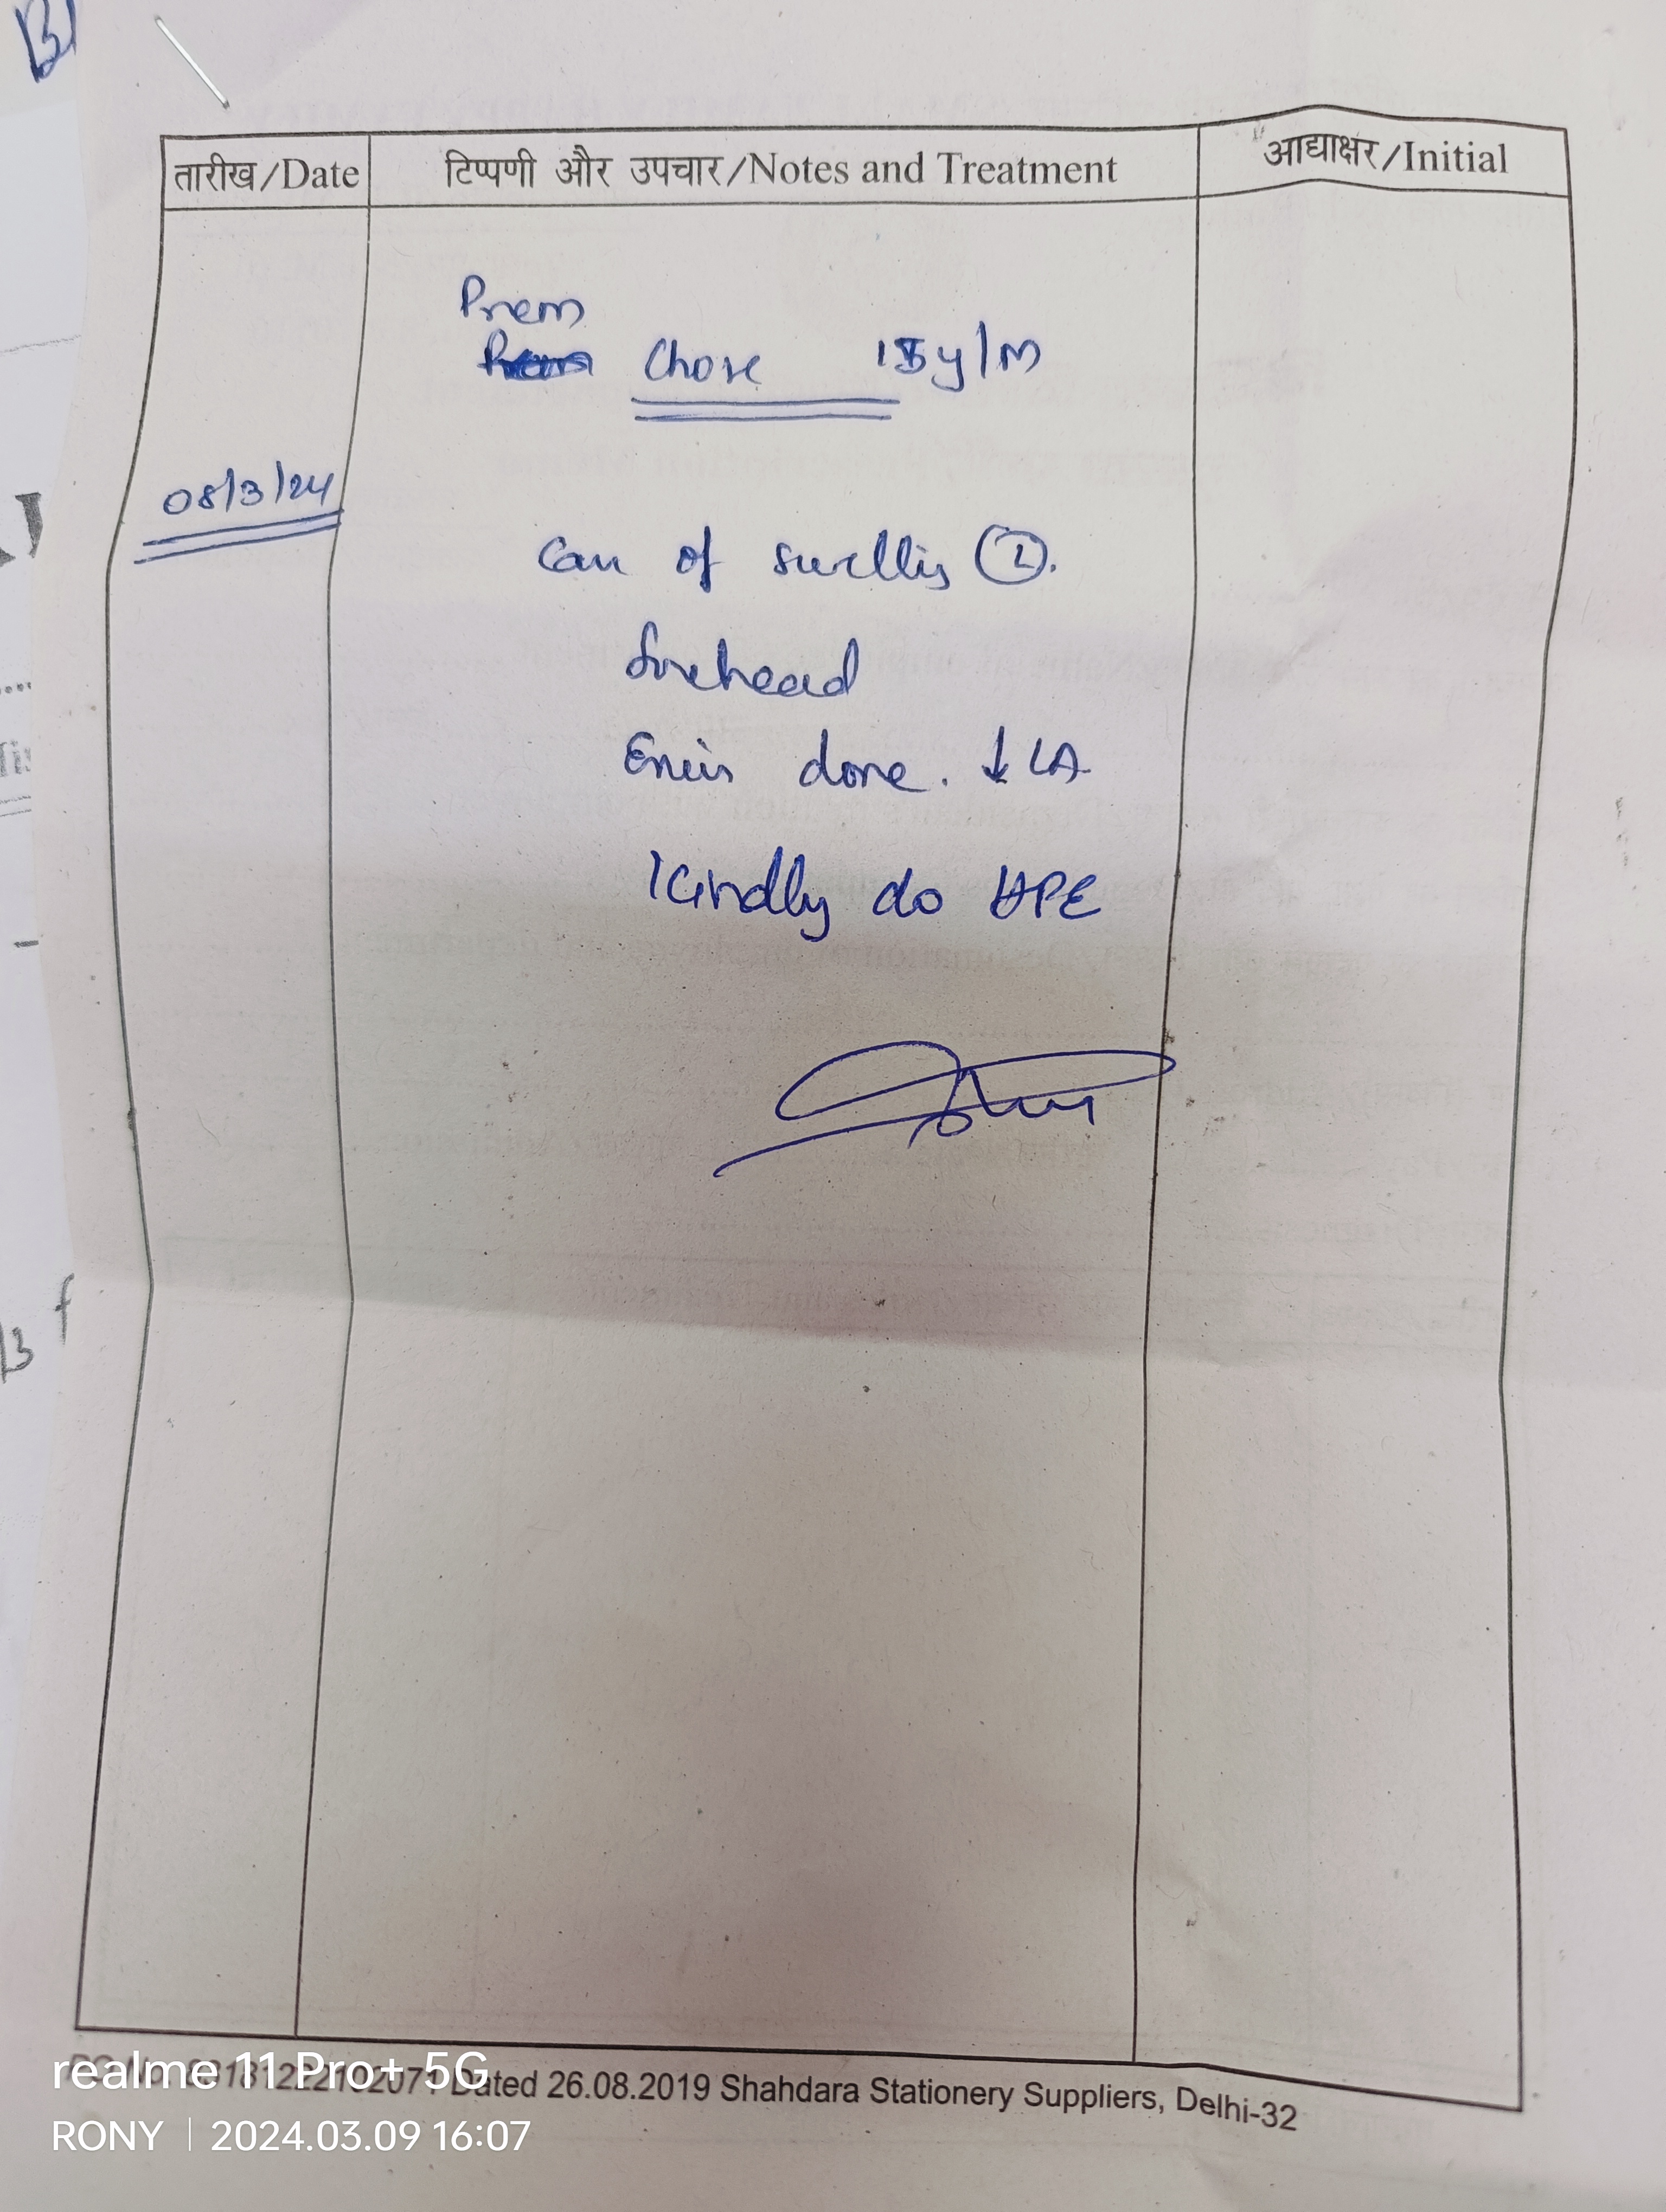 तारीख/Date टिप्पणी और उपचार/Notes and Treatment आद्याक्षर/Initial
Prem
Chose 15y/M
08/3/24
Case of swelling (L).
forehead
Excision done. ↓ LA
Kindly do HPE
Dated 26.08.2019 Shahdara Stationery Suppliers, Delhi-32
realme 11 Pro+ 5G
RONY | 2024.03.09 16:07